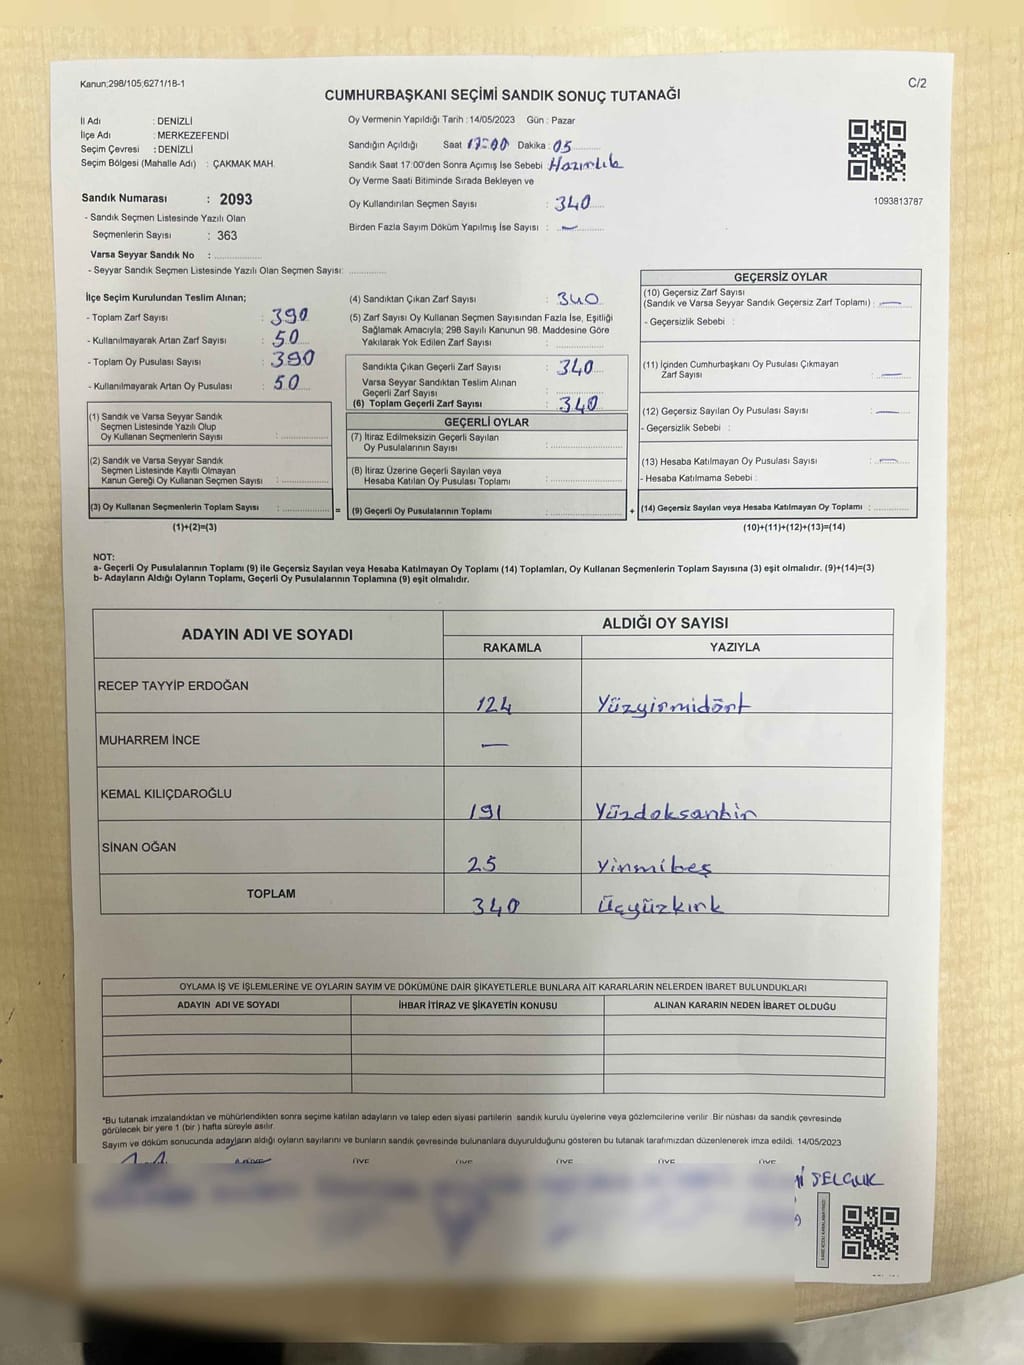 Kanun;298/105;6271/18-1
C/2
CUMHURBAŞKANI SEÇİMİ SANDIK SONUÇ TUTANAĞI
İl Adı : DENİZLİ
İlçe Adı : MERKEZEFENDİ
Seçim Çevresi : DENİZLİ
Seçim Bölgesi (Mahalle Adı) : ÇAKMAK MAH.
Sandık Numarası : 2093
- Sandık Seçmen Listesinde Yazılı Olan
Seçmenlerin Sayısı : 363
Varsa Seyyar Sandık No :
- Seyyar Sandık Seçmen Listesinde Yazılı Olan Seçmen Sayısı:
Oy Vermenin Yapıldığı Tarih : 14/05/2023 Gün : Pazar
Sandığın Açıldığı Saat 17:00 Dakika : 05
Sandık Saat 17:00'den Sonra Açımış İse Sebebi Hazırlık
Oy Verme Saati Bitiminde Sırada Bekleyen ve
Oy Kullandırılan Seçmen Sayısı : 340
Birden Fazla Sayım Döküm Yapılmış İse Sayısı : —
1093813787
İlçe Seçim Kurulundan Teslim Alınan;
- Toplam Zarf Sayısı : 390
- Kullanılmayarak Artan Zarf Sayısı : 50
- Toplam Oy Pusulası Sayısı : 390
- Kullanılmayarak Artan Oy Pusulası : 50
(1) Sandık ve Varsa Seyyar Sandık
Seçmen Listesinde Yazılı Olup
Oy Kullanan Seçmenlerin Sayısı :
(2) Sandık ve Varsa Seyyar Sandık
Seçmen Listesinde Kayıtlı Olmayan
Kanun Gereği Oy Kullanan Seçmen Sayısı :
(3) Oy Kullanan Seçmenlerin Toplam Sayısı :
(1)+(2)=(3)
(4) Sandıktan Çıkan Zarf Sayısı : 340
(5) Zarf Sayısı Oy Kullanan Seçmen Sayısından Fazla İse, Eşitliği
Sağlamak Amacıyla; 298 Sayılı Kanunun 98. Maddesine Göre
Yakılarak Yok Edilen Zarf Sayısı :
Sandıkta Çıkan Geçerli Zarf Sayısı : 340
Varsa Seyyar Sandıktan Teslim Alınan
Geçerli Zarf Sayısı :
(6) Toplam Geçerli Zarf Sayısı : 340
GEÇERLİ OYLAR
(7) İtiraz Edilmeksizin Geçerli Sayılan
Oy Pusulalarının Sayısı :
(8) İtiraz Üzerine Geçerli Sayılan veya
Hesaba Katılan Oy Pusulası Toplamı :
= (9) Geçerli Oy Pusulalarının Toplamı :
GEÇERSİZ OYLAR
(10) Geçersiz Zarf Sayısı
(Sandık ve Varsa Seyyar Sandık Geçersiz Zarf Toplamı) : —
- Geçersizlik Sebebi :
(11) İçinden Cumhurbaşkanı Oy Pusulası Çıkmayan
Zarf Sayısı : —
(12) Geçersiz Sayılan Oy Pusulası Sayısı : —
- Geçersizlik Sebebi :
(13) Hesaba Katılmayan Oy Pusulası Sayısı : —
- Hesaba Katılmama Sebebi :
+ (14) Geçersiz Sayılan veya Hesaba Katılmayan Oy Toplamı :
(10)+(11)+(12)+(13)=(14)
NOT:
a- Geçerli Oy Pusulalarının Toplamı (9) ile Geçersiz Sayılan veya Hesaba Katılmayan Oy Toplamı (14) Toplamları, Oy Kullanan Seçmenlerin Toplam Sayısına (3) eşit olmalıdır. (9)+(14)=(3)
b- Adayların Aldığı Oyların Toplamı, Geçerli Oy Pusulalarının Toplamına (9) eşit olmalıdır.
ADAYIN ADI VE SOYADI
ALDIĞI OY SAYISI
RAKAMLA YAZIYLA
RECEP TAYYİP ERDOĞAN 124 Yüzyirmidört
MUHARREM İNCE —
KEMAL KILIÇDAROĞLU 191 Yüzdoksanbir
SİNAN OĞAN 25 Yirmibeş
TOPLAM 340 Üçyüzkırk
OYLAMA İŞ VE İŞLEMLERİNE VE OYLARIN SAYIM VE DÖKÜMÜNE DAİR ŞİKAYETLERLE BUNLARA AİT KARARLARIN NELERDEN İBARET BULUNDUKLARI
ADAYIN ADI VE SOYADI İHBAR İTİRAZ VE ŞİKAYETİN KONUSU ALINAN KARARIN NEDEN İBARET OLDUĞU
*Bu tutanak imzalandıktan ve mühürlendikten sonra seçime katılan adayların ve talep eden siyasi partilerin sandık kurulu üyelerine veya gözlemcilerine verilir .Bir nüshası da sandık çevresinde
görülecek bir yere 1 (bir ) hafta süreyle asılır.
Sayım ve döküm sonucunda adayların aldığı oyların sayılarını ve bunların sandık çevresinde bulunanlara duyurulduğunu gösteren bu tutanak tarafımızdan düzenlenerek imza edildi. 14/05/2023
ÜYE ÜYE ÜYE ÜYE ÜYE
SELÇUK